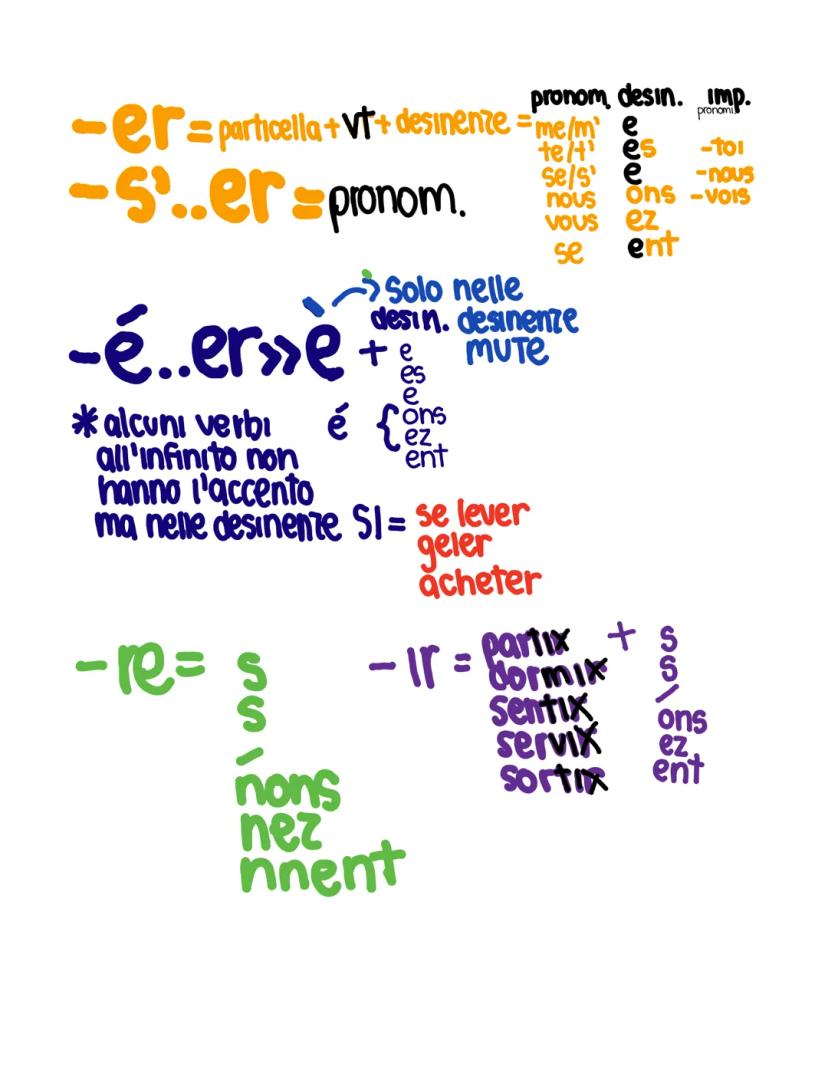 -er = particella + vt + desinenze =
-s'..er = pronom.
pronom. desin. imp.
pronomi
me/m' e
te/t' es -toi
se/s' e -nous
nous ons -vois
vous ez
se ent
-é..er»è + desin.
solo nelle
desinenze
MUTE
e
es
e
é { ons
ez
ent
* alcuni verbi
all'infinito non
hanno l'accento
ma nelle desinenze SI = se lever
geler
acheter
-re = s
s
/
nons
nez
nnent
-ir = partir + s
dormir s
sentir /
servir ons
sortir ez
ent